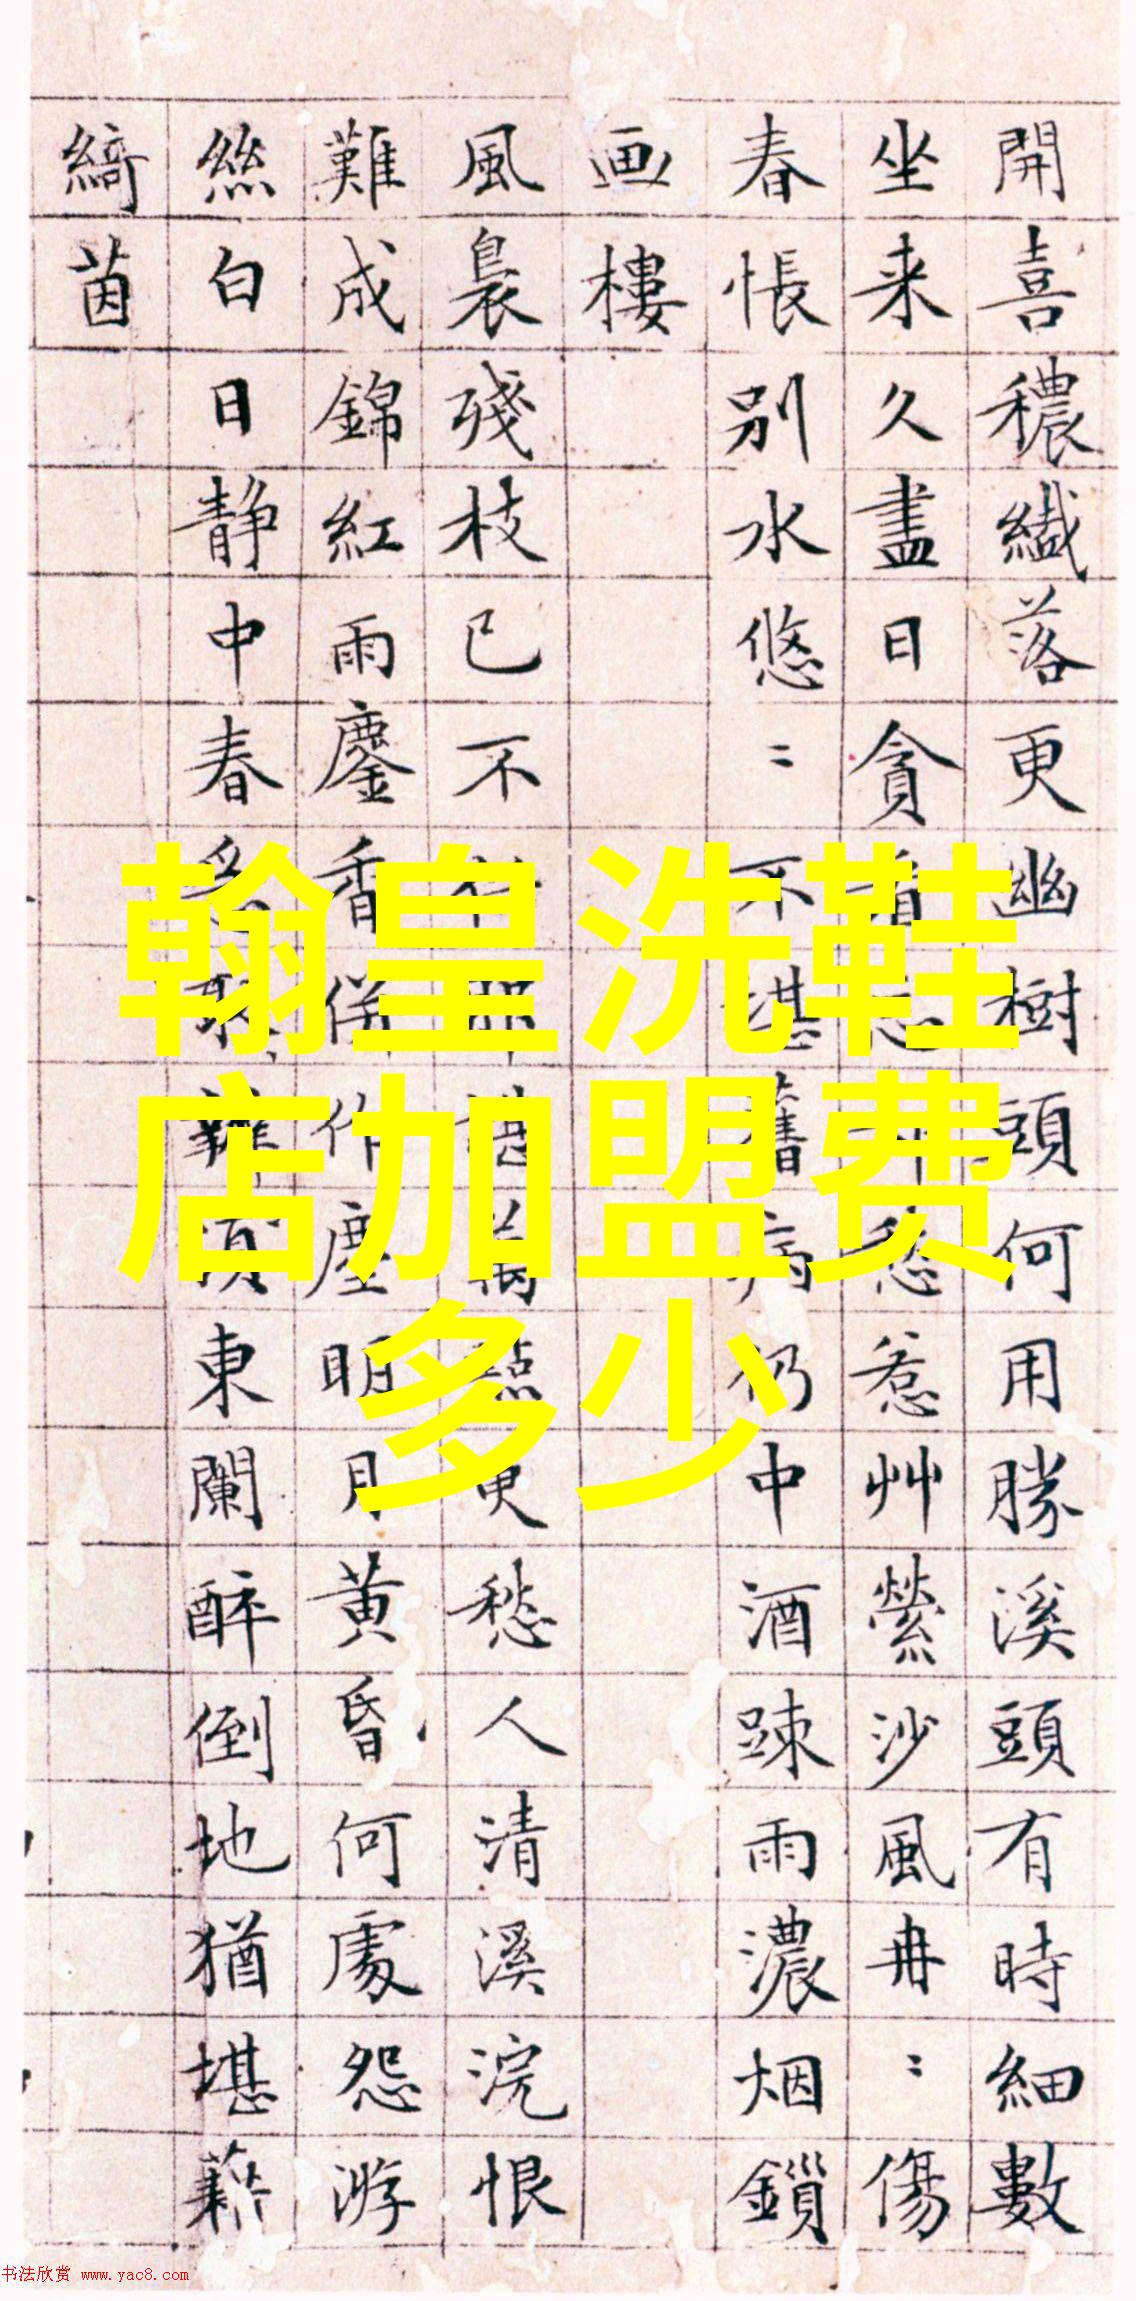 開喜穠纖落更幽樹頭何用勝溪頭有時細數
坐来久盡日貪看忘愁惹艸縈沙風冉〻傷
春悵别水悠〻不堪舊病仍中酒踈雨濃烟鎖
画樓
風裊殘枝已不那堪萬點更愁人清溪浣恨
難成錦紅雨鏖香併作塵明月黄昏何處怨游
絲白日静中春難須東闌醉倒地猶堪藉
綺茵
翰皇洗鞋
店加盟费
多少
书法欣赏 www.yac8.com